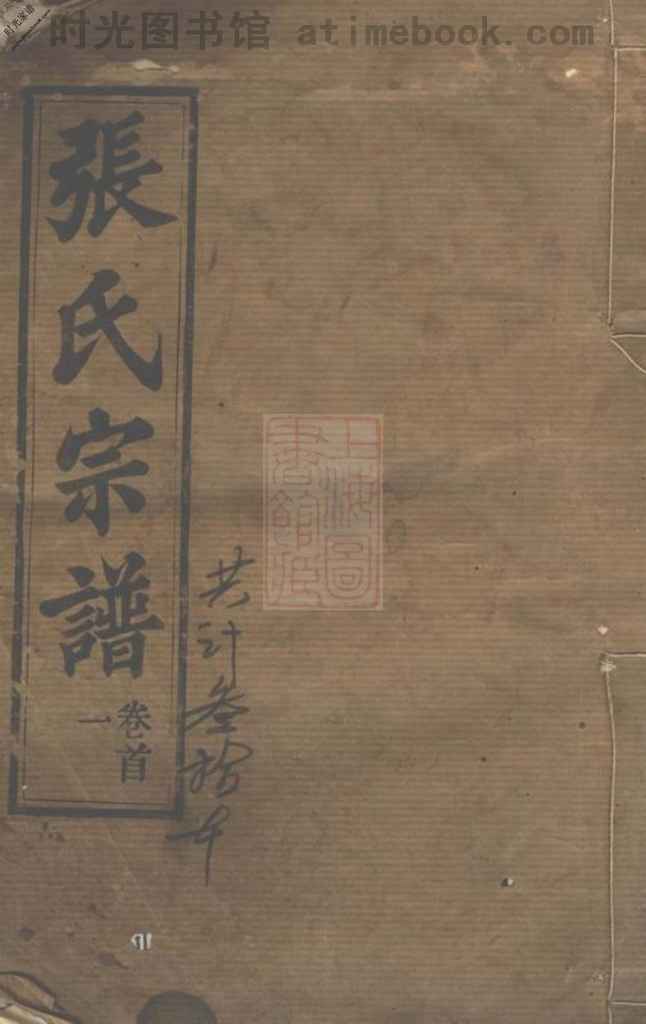 时光图书馆 atimebook.com
时光家谱
張氏宗譜
卷首
一
共计叁拾本
上海圖
書館藏